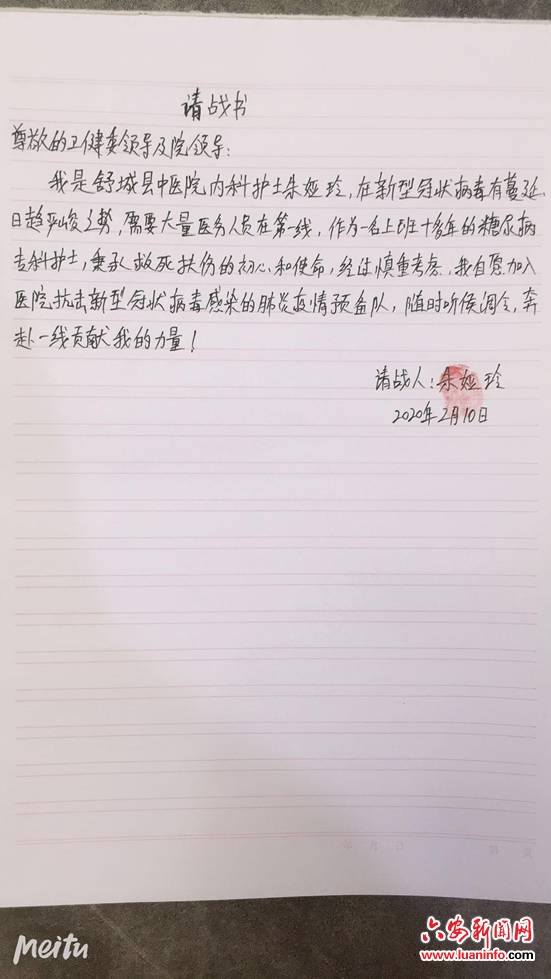 请战书
尊敬的卫健委领导及院领导:
我是舒城县中医院内科护士朱娅玲,在新型冠状病毒有蔓延
日趋严峻之势,需要大量医务人员在第一线,作为一名上班十多年的糖尿病
专科护士,秉承救死扶伤的初心和使命,经过慎重考虑,我自愿加入
医院抗击新型冠状病毒感染的肺炎疫情预备队,随时听侯调令,奔
赴一线贡献我的力量!
请战人:朱娅玲
2020年2月10日
年 月 日 第 页
meitu
六安新闻网
www.luaninfo.com